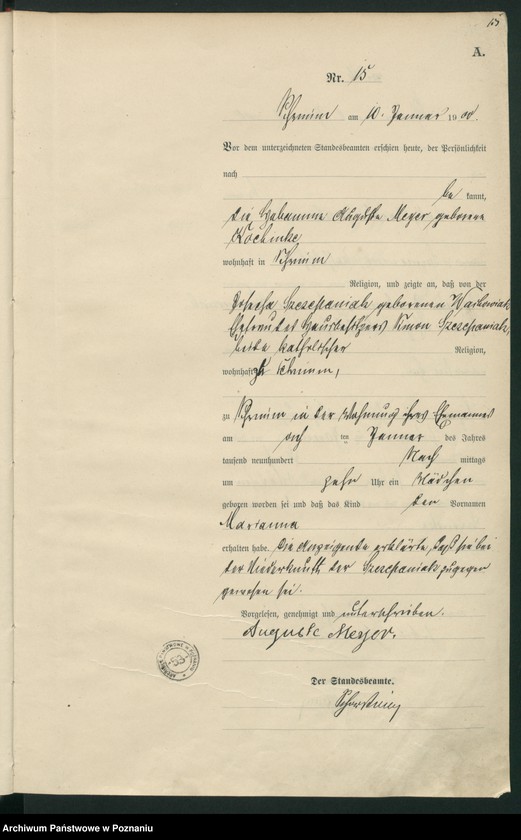 15
A.
Nr. 15
Schrimm am 10. Januar 1900.
Vor dem unterzeichneten Standesbeamten erschien heute, der Persönlichkeit
nach
be kannt,
die Hebamme Auguste Meyer geborene
wohnhaft in Schrimm
Religion, und zeigte an, daß von der
Josepha Szczepaniak geborenen
Ehefrau des Hausbesitzers Simon Szczepaniak,
beide katholischer Religion,
wohnhaft zu Schrimm,
zu Schrimm in der Wohnung ihres Ehemannes
am ten Januar des Jahres
tausend neunhundert Nach mittags
um zehn Uhr ein Mädchen
geboren worden sei und daß das Kind den Vornamen
Marianna
erhalten habe. Die Anzeigende erklärte, daß sie bei
der Niederkunft der Szczepaniak zugegen
gewesen sei.
Vorgelesen, genehmigt und unterschrieben.
Auguste Meyer.
Der Standesbeamte.
Archiwum Państwowe w Poznaniu